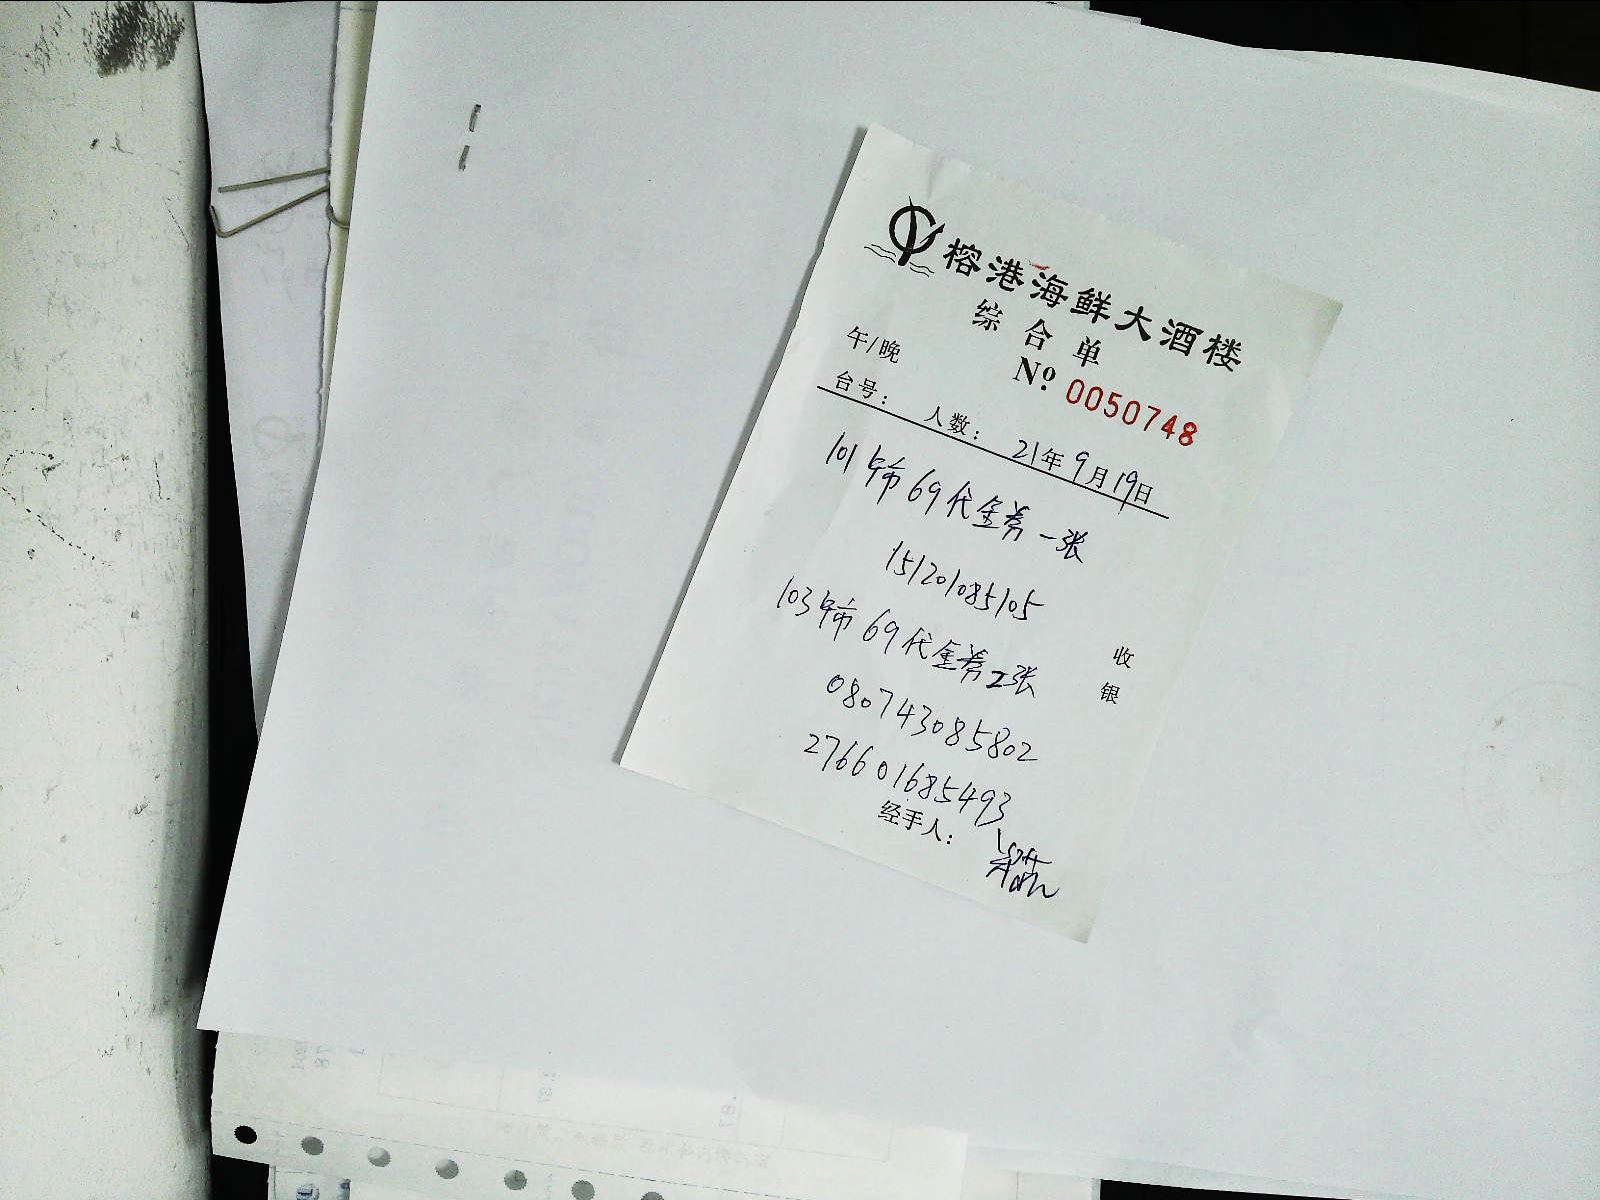 榕港海鲜大酒楼
综合单
午/晚
№ 0050748
台号： 人数： 21年9月19日
101 午市 69代金券一张
151201085105
103午市 69代金券2张
080743085802
276601685493
收银
经手人：